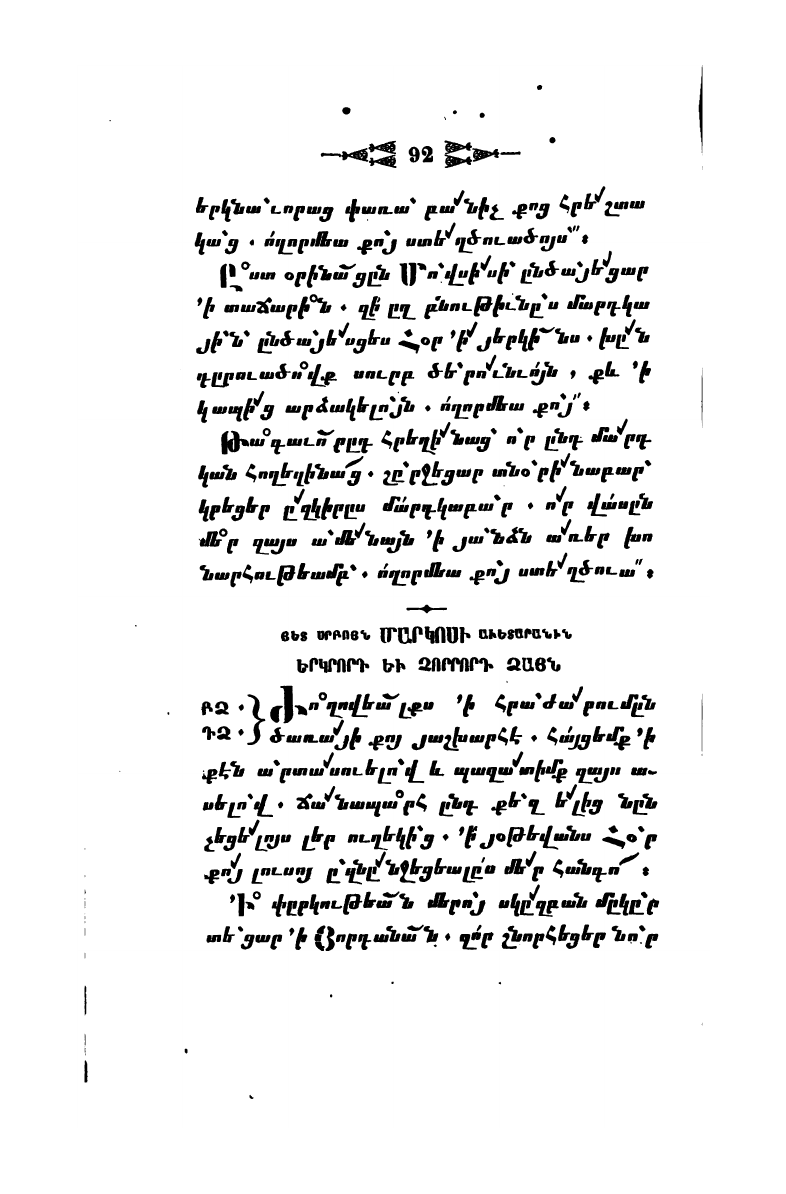 92
երկնա՝ւորաց փառա՝ բա՛նիչ քոց հրե՛շտա
կա՝ց ․ ո՛ղորմեա քո՝յ ստե՛ղծուածոյս՞ ։
Ը՟ստ օրինա՜ցըն Մո՝վսի՛սի՝ ընծա՝յե՛ցար
՚ի տաճարի՟ն ․ զի՛ ըղ բնութիւնը՝ս մարդկա
յի՝ն՝ ընծա՝յե՛սցես Հօր ՚ի՛ յերկի՜նս ․ խը՛ն
դըրուածո՟վք սուրբ ծե՝րո՛ւնւո՛յն , քև ՚ի
կապի՛ց արձակելո՝յն ․ ո՛ղորմեա քո՝յ՞ ։
Թա՟գաւո՜րըդ հրեղի՛նաց՝ ո՝ր ընդ մա՛րդ
կան հողեղինա՜ց ․ շը՝րջեցար տնօ՝րի՛նաբար՝
կրեցեր ը՛զկիրըս մա՛րդկաբա՝ր ․ ո՛ր վա՛սըն
մե՟ր զայս ա՝մե՛նայն ՚ի յա՝նձն ա՛ռեր խո
նարհութեամբ՝ ․ ո՛ղորմեա քո՝յ ստե՛ղծուա՞ ։
ՅԵՏ ՍՐԲՈՅՆ ՄԱՐԿՈՍԻ ԱՒԵՏԱՐԱՆԻՆ
ԵՐԿՐՈՐԴ ԵՒ ՉՈՐՐՈՐԴ ՁԱՅՆ
ԲՁ ․ Ժո՟ղովեա՜լքս ՚ի հրա՝ժա՛րումըն
ԴՁ ․ ծառա՛յի քոյ յաշխարհէ ․ հա՛յցեմք ՚ի
քէն ա՝րտա՛սուելո՝վ և պաղա՛տիմք զայս ա֊
սելո՝վ ․ ճա՛նապա՟րհ ընդ քե՝զ ե՛լից նըն
ջեցե՛լոյս լեր ուղեկի՝ց ․ ՚ի՛ յօթեվանս Հօ՝ր
քո՛յ լուսոյ ը՝զնը՛նջեցեալը՛ս մե՛ր հանգո՜ ։
՚Ի՟ փըրկութեա՜ն մերո՝յ սկը՛զբան մըկը՝ր
տե՝ցար ՚ի Յորդանա՜ն ․ զո՛ր շնորհեցեր նո՝ր